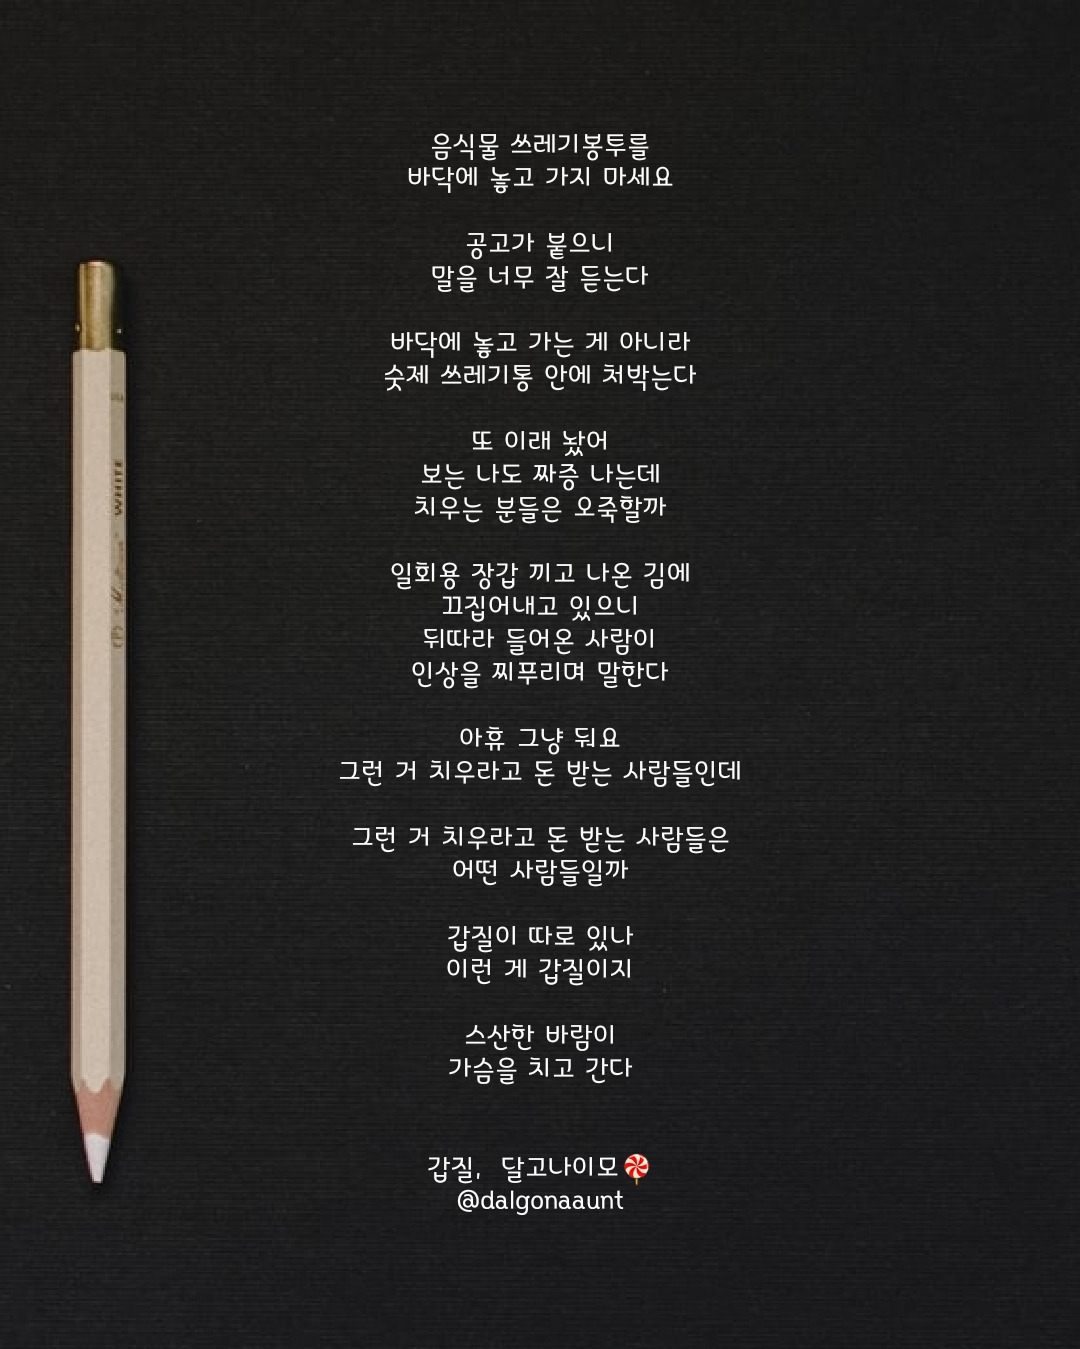 음식물 쓰레기봉투를
바닥에 놓고 가지 마세요
공고가 붙으니
말을 너무 잘 듣는다
바닥에 놓고 가는 게 아니라
숫제 쓰레기통 안에 처박는다
또 이래 놨어
보는 나도 짜증 나는데
치우는 분들은 오죽할까
일회용 장갑 끼고 나온 김에
끄집어내고 있으니
뒤따라 들어온 사람이
인상을 찌푸리며 말한다
아휴 그냥 둬요
그런 거 치우라고 돈 받는 사람들인데
그런 거 치우라고 돈 받는 사람들은
어떤 사람들일까
갑질이 따로 있나
이런 게 갑질이지
스산한 바람이
가슴을 치고 간다
갑질, 달고나이모🍭
@dalgonaaunt
WHITE